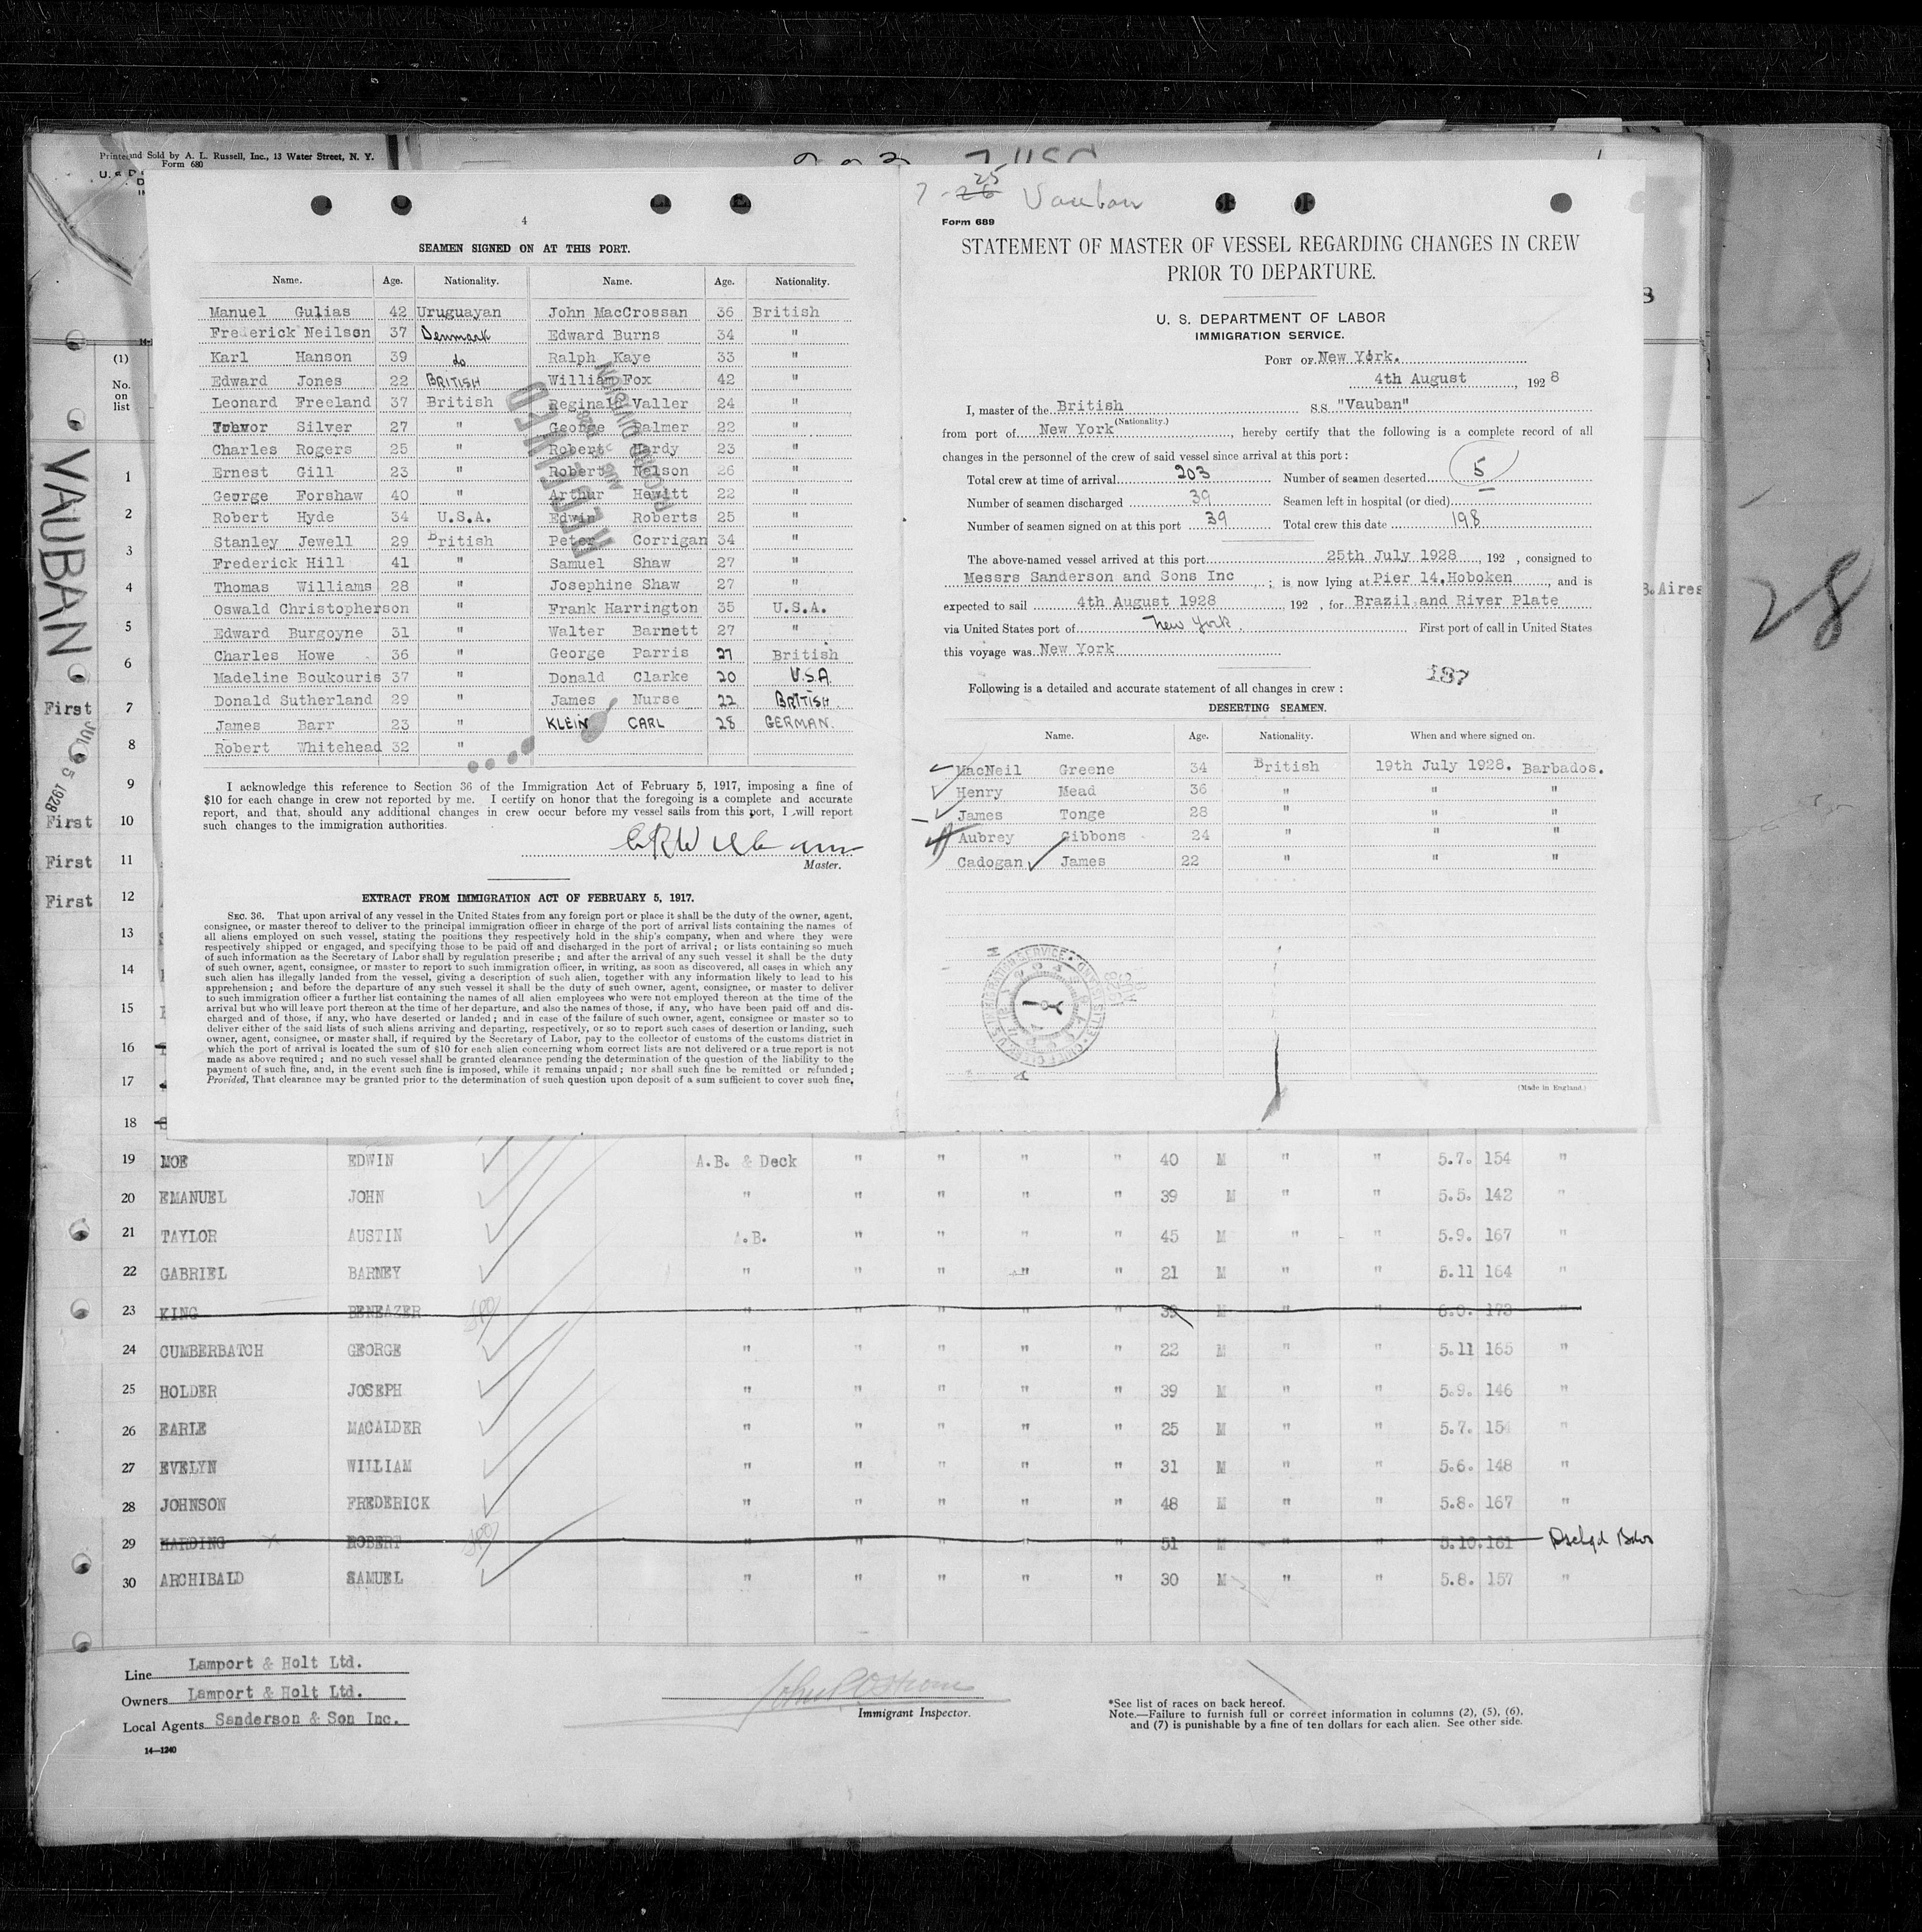 Printed and Sold by A. L. Russell, Inc., 13 Water Street, N. Y.
Form 680
4
SEAMEN SIGNED ON AT THIS PORT.
Name. Age. Nationality. Name. Age. Nationality.
Manuel Gulias 42 Uruguayan John MacCrossan 36 British
Frederick Neilson 37 Denmark Edward Burns 34 "
Karl Hanson 39 do Ralph Kaye 33 "
Edward Jones 22 BRITISH William Fox 42 "
Leonard Freeland 37 British Reginald Valler 24 "
Silver 27 " George Palmer 22 "
Charles Rogers 25 " Robert Hardy 23 "
Ernest Gill 23 " Robert Nelson 26 "
George Forshaw 40 " Arthur Hewitt 22 "
Robert Hyde 34 U.S.A. Edwin Roberts 25 "
Stanley Jewell 29 British Peter Corrigan 34 "
Frederick Hill 41 " Samuel Shaw 27 "
Thomas Williams 28 " Josephine Shaw 27 "
Oswald Christopherson " Frank Harrington 35 U.S.A.
Edward Burgoyne 31 " Walter Barnett 27 "
Charles Howe 36 " George Parris 27 British
Madeline Boukouris 37 " Donald Clarke 20 U.S.A.
Donald Sutherland 29 " James Nurse 22 BRITISH.
James Barr 23 " KLEIN CARL 28 GERMAN.
Robert Whitehead 32 "
RECEIVED
RECORD DIVISION
I acknowledge this reference to Section 36 of the Immigration Act of February 5, 1917, imposing a fine of
$10 for each change in crew not reported by me. I certify on honor that the foregoing is a complete and accurate
report, and that, should any additional changes in crew occur before my vessel sails from this port, I will report
such changes to the immigration authorities.
Master.
EXTRACT FROM IMMIGRATION ACT OF FEBRUARY 5, 1917.
SEC. 36. That upon arrival of any vessel in the United States from any foreign port or place it shall be the duty of the owner, agent,
consignee, or master thereof to deliver to the principal immigration officer in charge of the port of arrival lists containing the names of
all aliens employed on such vessel, stating the positions they respectively hold in the ship's company, when and where they were
respectively shipped or engaged, and specifying those to be paid off and discharged in the port of arrival; or lists containing so much
of such information as the Secretary of Labor shall by regulation prescribe; and after the arrival of any such vessel it shall be the duty
of such owner, agent, consignee, or master to report to such immigration officer, in writing, as soon as discovered, all cases in which any
such alien has illegally landed from the vessel, giving a description of such alien, together with any information likely to lead to his
apprehension; and before the departure of any such vessel it shall be the duty of such owner, agent, consignee, or master to deliver
to such immigration officer a further list containing the names of all alien employees who were not employed thereon at the time of the
arrival but who will leave port thereon at the time of her departure, and also the names of those, if any, who have been paid off and dis-
charged and of those, if any, who have deserted or landed; and in case of the failure of such owner, agent, consignee or master so to
deliver either of the said lists of such aliens arriving and departing, respectively, or so to report such cases of desertion or landing, such
owner, agent, consignee, or master shall, if required by the Secretary of Labor, pay to the collector of customs of the customs district in
which the port of arrival is located the sum of $10 for each alien concerning whom correct lists are not delivered or a true report is not
made as above required; and no such vessel shall be granted clearance pending the determination of the question of the liability to the
payment of such fine, and, in the event such fine is imposed, while it remains unpaid; nor shall such fine be remitted or refunded;
Provided, That clearance may be granted prior to the determination of such question upon deposit of a sum sufficient to cover such fine.
7-26 25 Vauban
Form 689
STATEMENT OF MASTER OF VESSEL REGARDING CHANGES IN CREW
PRIOR TO DEPARTURE.
U. S. DEPARTMENT OF LABOR
IMMIGRATION SERVICE.
PORT OF New York.
4th August, 1928
I, master of the British S.S. "Vauban"
(Nationality.)
from port of New York, hereby certify that the following is a complete record of all
changes in the personnel of the crew of said vessel since arrival at this port:
Total crew at time of arrival 203 Number of seamen deserted 5
Number of seamen discharged 39 Seamen left in hospital (or died)
Number of seamen signed on at this port 39 Total crew this date 198
The above-named vessel arrived at this port 25th July 1928, 192 , consigned to
Messrs Sanderson and Sons Inc ; is now lying at Pier 14.Hoboken, and is
expected to sail 4th August 1928 192 , for Brazil and River Plate
via United States port of New York. First port of call in United States
this voyage was New York
187
Following is a detailed and accurate statement of all changes in crew:
DESERTING SEAMEN.
Name. Age. Nationality. When and where signed on.
MacNeil Greene 34 British 19th July 1928. Barbados.
Henry Mead 36 " " "
James Tonge 28 " " "
Aubrey Gibbons 24 " " "
Cadogan James 22 " " "
(Made in England.)
B. Aires
28
VAUBAN
JUL 5 1928
(1)
No.
on
list
1
2
3
4
5
6
First 7
8
9
First 10
First 11
First 12
13
14
15
16
17
18
19 MOE EDWIN A.B. & Deck " " " " 40 M " " 5.7. 154 "
20 EMANUEL JOHN " " " " " 39 M " " 5.5. 142 "
21 TAYLOR AUSTIN A.B. " " " " 45 M " " 5.9. 167 "
22 GABRIEL BARNEY " " " " " 21 M " " 5.11 164 "
23 KING BENEAZER " " " " " 39 M " " 6.0. 173 "
24 CUMBERBATCH GEORGE " " " " " 22 M " " 5.11 165 "
25 HOLDER JOSEPH " " " " " 39 M " " 5.9. 146 "
26 EARLE MACALDER " " " " " 25 M " " 5.7. 154 "
27 EVELYN WILLIAM " " " " " 31 M " " 5.6. 148 "
28 JOHNSON FREDERICK " " " " " 48 M " " 5.8. 167 "
29 HARDING ROBERT " " " " " 51 M " " 5.10. 161
30 ARCHIBALD SAMUEL " " " " " 30 M " " 5.8. 157 "
Line Lamport & Holt Ltd.
Owners Lamport & Holt Ltd.
Local Agents Sanderson & Son Inc.
14—1240
Immigrant Inspector.
*See list of races on back hereof.
Note.—Failure to furnish full or correct information in columns (2), (5), (6),
and (7) is punishable by a fine of ten dollars for each alien. See other side.